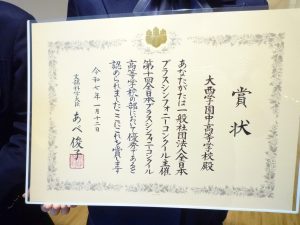 賞状
大西学園中・高等学校殿
あなたがたは一般社団法人全日本
ブラスシンフォニーコンクール主催
第十回全日本ブラスシンフォニーコンクール
高等学校の部において優秀であると
認められましたのでここにこれを賞します
令和七年一月十二日
文部科学大臣 あべ俊子